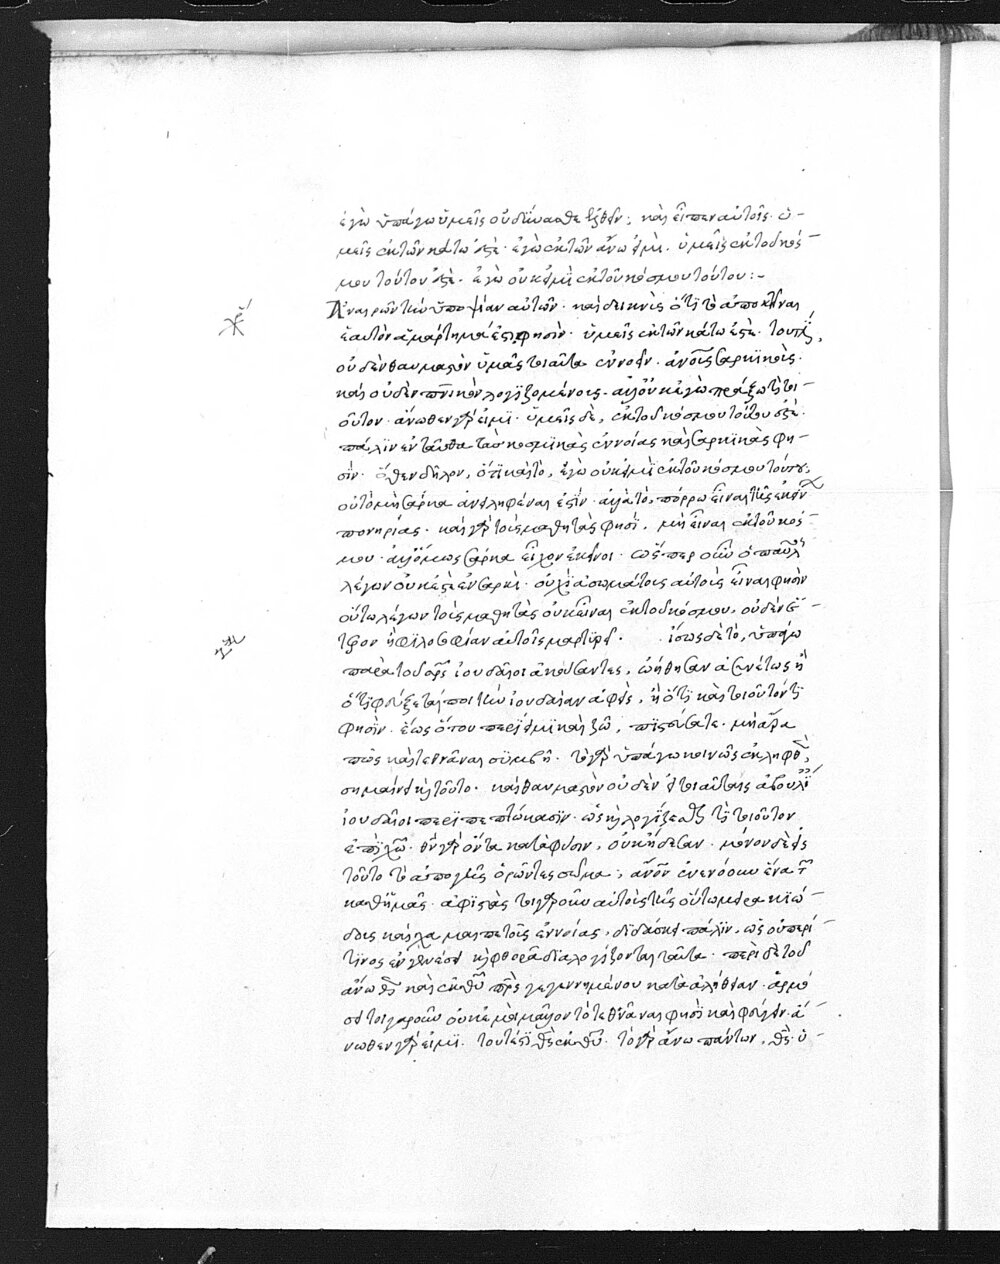 ἐγὼ ὑπάγω ὑμεῖς οὐ δύνασθε ἐλθεῖν; καὶ εἶπεν αὐτοῖς. ὑ-
μεῖς ἐκ τῶν κάτω ἐστέ. ἐγὼ ἐκ τῶν ἄνω εἰμί. ὑμεῖς ἐκ τοῦ κόσ-
μου τούτου ἐστέ. ἐγὼ οὐκ εἰμὶ ἐκ τοῦ κόσμου τούτου:-
Ἀναιρῶν τὴν ὑποψίαν αὐτῶν. καὶ δεικνὺς ὅτι τὸ ἀποκτεῖναι
ἑαυτὸν ἁμάρτημά ἐστι φησίν. ὑμεῖς ἐκ τῶν κάτω ἐστέ. τουτέστι,
οὐδὲν θαυμαστὸν ὑμᾶς τοιαῦτα ἐννοεῖν. ἀνοις σαρκικοὺς.
καὶ οὐδὲν πνικὸν λογιζομένους. ἀλλ' οὐκ ἐγὼ πράξω τι τοι-
οῦτον. ἄνωθεν γάρ εἰμι. ὑμεῖς δὲ, ἐκ τοῦ κόσμου τούτου ἐστέ.
πάλιν ἐνταῦθα τὰς κοσμικὰς ἐννοίας καὶ σαρκικὰς φη-
σίν. ὅθεν δῆλον, ὅτι καὶ τὸ, ἐγὼ οὐκ εἰμὶ ἐκ τοῦ κόσμου τούτου,
οὐ τὸ μὴ σάρκα ἀνειληφέναι ἐστίν. ἀλλὰ τὸ, πόρρω εἶναι τῆς ἐκείνων
πονηρίας. καὶ γὰρ τοὺς μαθητάς φησι, μὴ εἶναι ἐκ τοῦ κόσ-
μου. ἀλλ' ὅμως σάρκα εἶχον ἐκεῖνοι. ὥσπερ οὖν ὁ παῦλ
λέγων οὐκ ἐστὲ ἐν σαρκὶ. οὐχὶ ἀσωμάτους αὐτοὺς εἶναι φησὶν
οὕτω λέγων τοὺς μαθητὰς οὐκ εἶναι ἐκ τοῦ κόσμου, οὐδὲν ἕ-
τερον ἢ φιλοσοφίαν αὐτοῖς μαρτυρεῖ. ἴσως δὲ τὸ, ὑπάγω
παρὰ τοῦ ἰουδαῖοι ἀκούσαντες, ᾠήθησαν ἀσυνέτως ἢ
ὅτι φεύξεταί ποι τὴν ἰουδαίαν ἀφεὶς, ἢ ὅτι καὶ τοιοῦτόν τι
φησὶν. ἕως ὅτου περίειμι καὶ ζῶ, πιστεύσατε. μὴ ἄρα
πως καὶ τεθνάναι συμβῇ. τὸ γὰρ ὑπάγω κοινῶς ἐκληφθὲν,
σημαίνει καὶ τοῦτο. καὶ θαυμαστὸν οὐδὲν εἰ τοιαύταις ἀβουλί
ἰουδαῖοι περιπεπτώκασιν. ὡς καὶ λογίζεσθαί τι τοιοῦτον
ἐπὶ χῶ. θν γὰρ ὄντα κατὰ φύσιν, οὐκ ᾔδεσαν. μόνον δὲ εἰς
τοῦτο τὸ ἀπὸ γῆς ὁρῶντες σῶμα, ἄνον ἐνενόουν ἕνα τ
καθ' ἡμᾶς. ἀφιστὰς τοιγαροῦν αὐτοὺς τῆς οὕτω μειρακιώ-
δους καὶ χαμαιπετοῦς ἐννοίας, διδάσκει πάλιν, ὡς οὐ περί
τινος ἐν γενέσει καὶ φθορᾷ διαλογίζονται ταῦτα. περὶ δὲ τοῦ
ἄνωθεν καὶ ἐκ θυ πρς γεγεννημένου κατὰ ἀλήθειαν. ἁρμό
σει τοιγαροῦν οὐκ ἐμοὶ μᾶλλον τὸ τεθνάναι φησὶ καὶ φεύγειν. ἄ-
νωθεν γάρ εἰμι. τουτέστι θς ἐκ θυ. τὸ γὰρ ἄνω πάντων, θς ὁ-